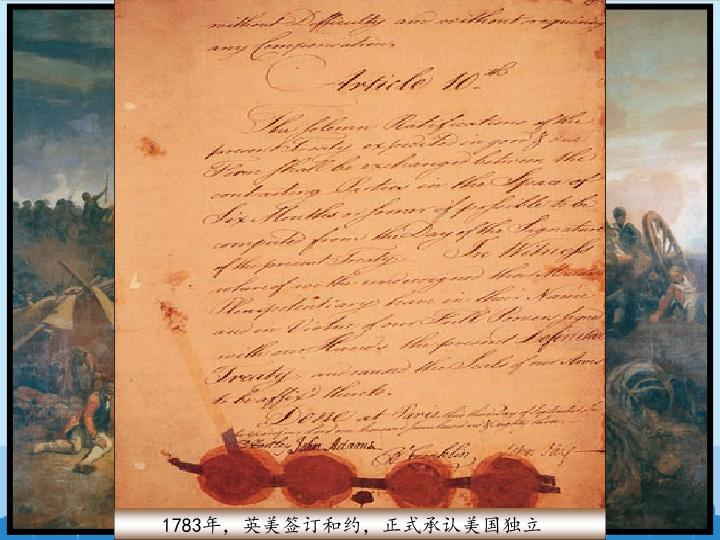 without Difficulty and without requiring
any Compensation.
Article 10.th
The solemn Ratifications of the
present Treaty expedited in good & due
Form shall be exchanged between the
contracting Parties in the Space of
Six Months or sooner if possible to be
computed from the Day of the Signature
of the present Treaty. In Witness
whereof we the undersigned their Ministers
Plenipotentiary have in their Name
and in Virtue of our Full Powers signed
with our Hands the present Definitive
Treaty, and caused the Seals of our Arms
to be affix'd thereto.
Done at Paris, this third day of September In
thousand seven hundred & eighty three.
D Hartley John Adams B Franklin John Jay
1783年，英美签订和约，正式承认美国独立